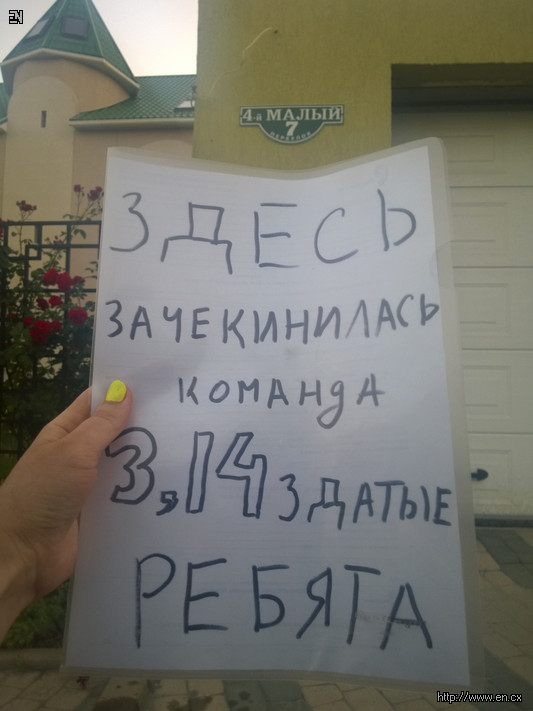 EN
4-й МАЛЫЙ
7
ПЕРЕУЛОК
ЗДЕСЬ
ЗАЧЕКИНИЛАСЬ
КОМАНДА
3,14ЗДАТЫЕ
РЕБЯТА
http://www.en.cx